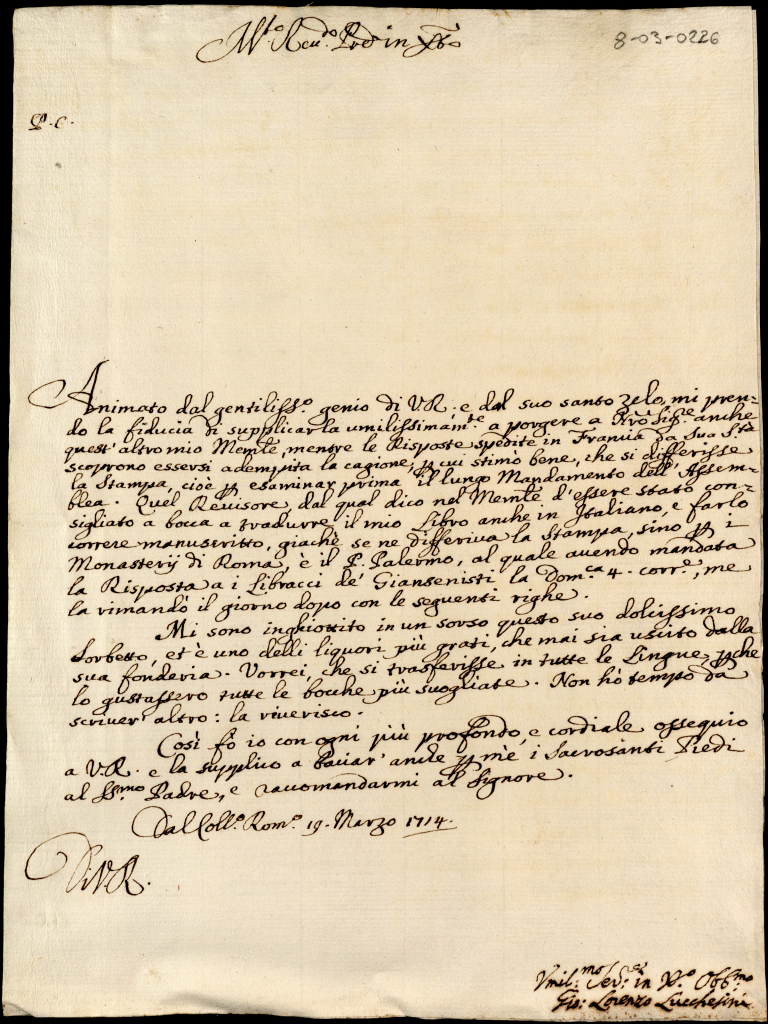 M.to Reu.do Prẽ in Xp̃o
8-03-0226
P. C.
Animato dal gentiliss.o genio di V.R. e dal suo santo zelo, mi pren-
do la fiducia di supplicarla umilissimam.te a porgere a Nr̃o Sig.re anche
quest'altro mio Memle, mentre le Risposte spedite in Francia da Sua S.tà
scoprono essersi adempita la cagione, p cui stimò bene, che si differisse
la Stampa, cioè p esaminar prima il lungo Mandamento dell'Assem-
blea. Quel Revisore, dal qual dico nel Memle d'essere stato con-
sigliato a bocca a tradurre il mio Libro anche in Italiano, e farlo
correre manuscritto, giachè se ne differiva la Stampa, sino p i
Monasterij di Roma, è il P. Palermo, al quale avendo mandata
la Risposta a i Libracci de' Giansenisti la Dom.ca 4. corr.e, me
la rimandò il giorno dopo con le seguenti righe.
Mi sono inghiottito in un sorso questo suo dolcissimo
Sorbetto, et è uno delli liquori più grati, che mai sia uscito dalla
sua fonderia. Vorrei, che si trasferisse in tutte le Lingue, pche
lo gustassero tutte le bocche più svogliate. Non hò tempo da
scriver' altro: la riverisco.
Così fò io con ogni più profondo, e cordiale ossequio
a V.R. e la supplico a baciar' anche p mè i Sacrosanti Piedi
al SS.mo Padre, e raccomandarmi al Signore.
Dal Coll.o Rom.o 19. Marzo 1714.
Di V.R.
Vmil.mo Ser.e in Xp̃o Obb.mo
Gio: Lorenzo Lucchesini